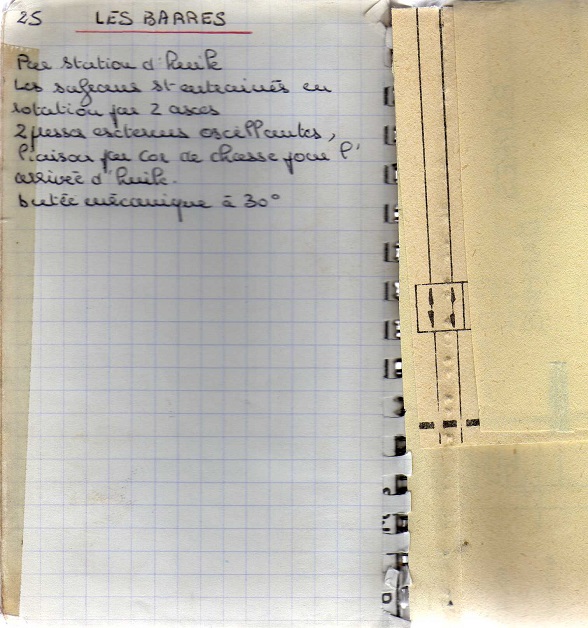 25 LES BARRES
Par station d'huile
Les safrans st entrainés en
rotation par 2 axes
2 presses externes oscillantes,
liaison par cor de chasse pour l'
arrivée d'huile.
butée mécanique à 30°